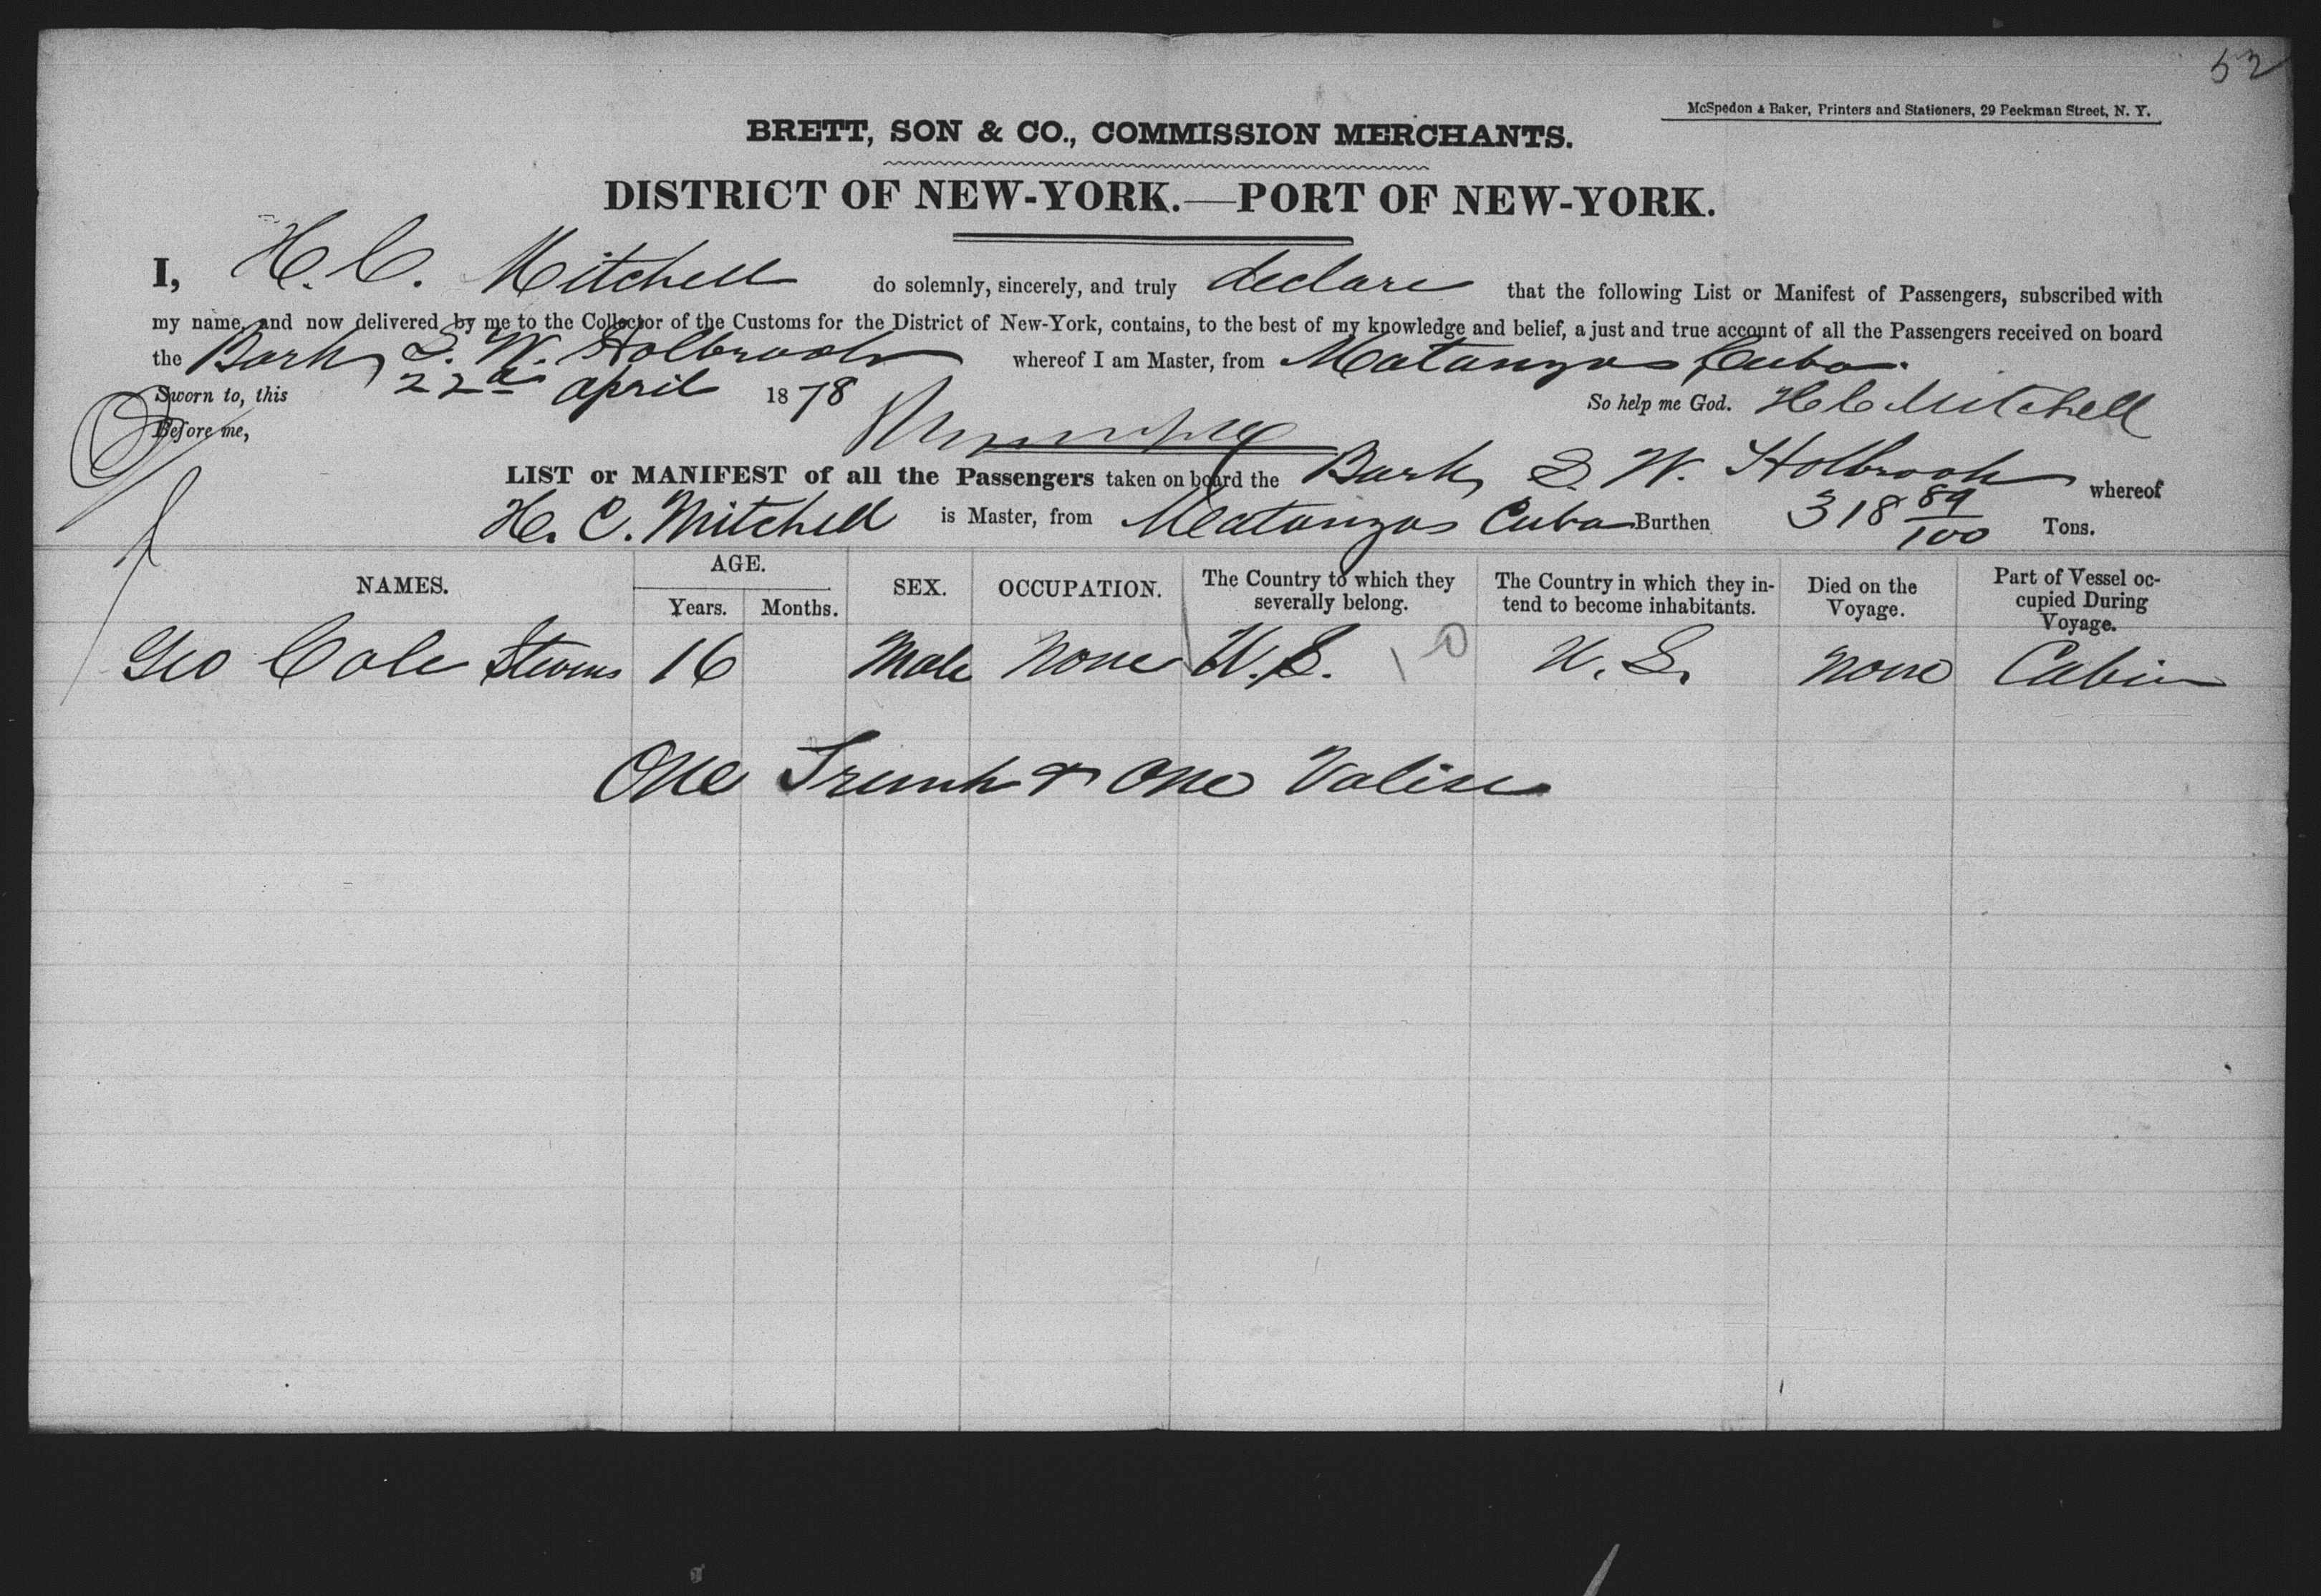 52
McSpedon & Baker, Printers and Stationers, 29 Beekman Street, N. Y.
BRETT, SON & CO., COMMISSION MERCHANTS.
DISTRICT OF NEW-YORK.—PORT OF NEW-YORK.
I, H. C. Mitchell do solemnly, sincerely, and truly declare that the following List or Manifest of Passengers, subscribed with
my name, and now delivered by me to the Collector of the Customs for the District of New-York, contains, to the best of my knowledge and belief, a just and true account of all the Passengers received on board
the Bark S. W. Holbrook whereof I am Master, from Matanzas Cuba.
Sworn to, this 22d April 1878 So help me God. H C Mitchell
Before me,
LIST or MANIFEST of all the Passengers taken on board the Bark S. W. Holbrook whereof
H. C. Mitchell is Master, from Matanzas Cuba Burthen 318 89/100 Tons.
NAMES. AGE. Years. Months. SEX. OCCUPATION. The Country to which they severally belong. The Country in which they intend to become inhabitants. Died on the Voyage. Part of Vessel occupied During Voyage.
Geo Cole Stevens 16 Male None U.S. 10 U.S. None Cabin
One Trunk & One Valise